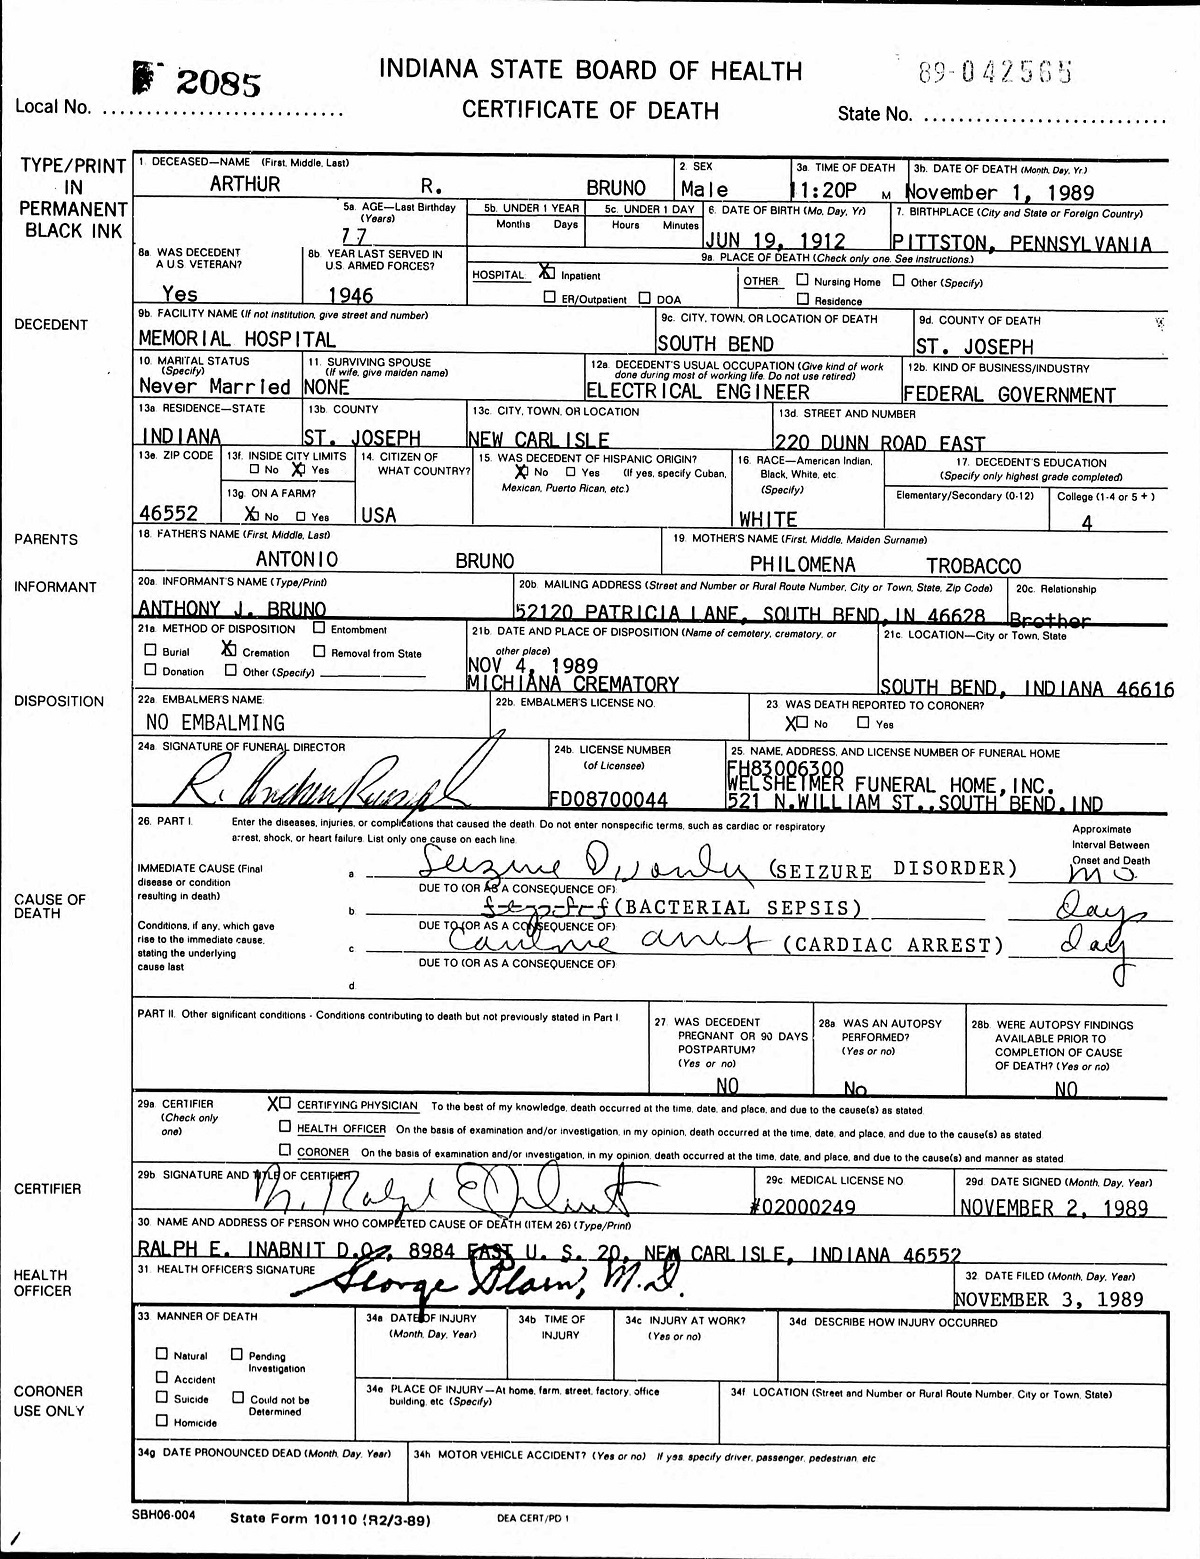 INDIANA STATE BOARD OF HEALTH
CERTIFICATE OF DEATH
Local No. 2085
State No. 89-042565
TYPE/PRINT IN PERMANENT BLACK INK
1. DECEASED—NAME (First, Middle, Last)
ARTHUR R. BRUNO
2. SEX
Male
3a. TIME OF DEATH
11:20P M
3b. DATE OF DEATH (Month, Day, Yr.)
November 1, 1989
5a. AGE—Last Birthday (Years)
77
5b. UNDER 1 YEAR
Months Days
5c. UNDER 1 DAY
Hours Minutes
6. DATE OF BIRTH (Mo, Day, Yr)
JUN 19, 1912
7. BIRTHPLACE (City and State or Foreign Country)
PITTSTON, PENNSYLVANIA
DECEDENT
8a. WAS DECEDENT A U.S. VETERAN?
Yes
8b. YEAR LAST SERVED IN U.S. ARMED FORCES?
1946
9a. PLACE OF DEATH (Check only one. See instructions.)
HOSPITAL: X Inpatient
ER/Outpatient DOA
OTHER Nursing Home Other (Specify)
Residence
9b. FACILITY NAME (If not institution, give street and number)
MEMORIAL HOSPITAL
9c. CITY, TOWN, OR LOCATION OF DEATH
SOUTH BEND
9d. COUNTY OF DEATH
ST. JOSEPH
10. MARITAL STATUS (Specify)
Never Married
11. SURVIVING SPOUSE (If wife, give maiden name)
NONE
12a. DECEDENT'S USUAL OCCUPATION (Give kind of work done during most of working life. Do not use retired)
ELECTRICAL ENGINEER
12b. KIND OF BUSINESS/INDUSTRY
FEDERAL GOVERNMENT
13a. RESIDENCE—STATE
INDIANA
13b. COUNTY
ST. JOSEPH
13c. CITY, TOWN, OR LOCATION
NEW CARLISLE
13d. STREET AND NUMBER
220 DUNN ROAD EAST
13e. ZIP CODE
46552
13f. INSIDE CITY LIMITS
No X Yes
13g. ON A FARM?
X No Yes
14. CITIZEN OF WHAT COUNTRY?
USA
15. WAS DECEDENT OF HISPANIC ORIGIN?
X No Yes (If yes, specify Cuban, Mexican, Puerto Rican, etc.)
16. RACE—American Indian, Black, White, etc. (Specify)
WHITE
17. DECEDENT'S EDUCATION
(Specify only highest grade completed)
Elementary/Secondary (0-12) College (1-4 or 5 + )
4
PARENTS
18. FATHER'S NAME (First, Middle, Last)
ANTONIO BRUNO
19. MOTHER'S NAME (First, Middle, Maiden Surname)
PHILOMENA TROBACCO
INFORMANT
20a. INFORMANT'S NAME (Type/Print)
ANTHONY J. BRUNO
20b. MAILING ADDRESS (Street and Number or Rural Route Number, City or Town, State, Zip Code)
52120 PATRICIA LANE, SOUTH BEND, IN 46628
20c. Relationship
Brother
DISPOSITION
21a. METHOD OF DISPOSITION Entombment
Burial X Cremation Removal from State
Donation Other (Specify)
21b. DATE AND PLACE OF DISPOSITION (Name of cemetery, crematory, or other place)
NOV 4, 1989
MICHIANA CREMATORY
21c. LOCATION—City or Town, State
SOUTH BEND, INDIANA 46616
22a. EMBALMER'S NAME:
NO EMBALMING
22b. EMBALMER'S LICENSE NO.
23. WAS DEATH REPORTED TO CORONER?
X No Yes
24a. SIGNATURE OF FUNERAL DIRECTOR
24b. LICENSE NUMBER (of Licensee)
FD08700044
25. NAME, ADDRESS, AND LICENSE NUMBER OF FUNERAL HOME
FH83006300
WELSHEIMER FUNERAL HOME, INC.
521 N.WILLIAM ST.,SOUTH BEND,IND
CAUSE OF DEATH
26. PART I. Enter the diseases, injuries, or complications that caused the death. Do not enter nonspecific terms, such as cardiac or respiratory arrest, shock, or heart failure. List only one cause on each line.
Approximate Interval Between Onset and Death
IMMEDIATE CAUSE (Final disease or condition resulting in death)
a Seizure Disorder (SEIZURE DISORDER) mo.
DUE TO (OR AS A CONSEQUENCE OF):
b sepsis (BACTERIAL SEPSIS) days
DUE TO (OR AS A CONSEQUENCE OF):
c Cardiac arrest (CARDIAC ARREST) day
DUE TO (OR AS A CONSEQUENCE OF):
d
Conditions, if any, which gave rise to the immediate cause, stating the underlying cause last
PART II. Other significant conditions - Conditions contributing to death but not previously stated in Part I.
27. WAS DECEDENT PREGNANT OR 90 DAYS POSTPARTUM? (Yes or no)
NO
28a. WAS AN AUTOPSY PERFORMED? (Yes or no)
No
28b. WERE AUTOPSY FINDINGS AVAILABLE PRIOR TO COMPLETION OF CAUSE OF DEATH? (Yes or no)
NO
CERTIFIER
29a. CERTIFIER (Check only one)
X CERTIFYING PHYSICIAN To the best of my knowledge, death occurred at the time, date, and place, and due to the cause(s) as stated.
HEALTH OFFICER On the basis of examination and/or investigation, in my opinion, death occurred at the time, date, and place, and due to the cause(s) as stated.
CORONER On the basis of examination and/or investigation, in my opinion, death occurred at the time, date, and place, and due to the cause(s) and manner as stated.
29b. SIGNATURE AND TITLE OF CERTIFIER
29c. MEDICAL LICENSE NO.
#02000249
29d. DATE SIGNED (Month, Day, Year)
NOVEMBER 2, 1989
30. NAME AND ADDRESS OF PERSON WHO COMPLETED CAUSE OF DEATH (ITEM 26) (Type/Print)
RALPH E. INABNIT D.O., 8984 EAST U. S. 20, NEW CARLISLE, INDIANA 46552
HEALTH OFFICER
31. HEALTH OFFICER'S SIGNATURE
George Plain, M.D.
32. DATE FILED (Month, Day, Year)
NOVEMBER 3, 1989
CORONER USE ONLY
33. MANNER OF DEATH
Natural Pending Investigation
Accident
Suicide Could not be Determined
Homicide
34a. DATE OF INJURY (Month, Day, Year)
34b. TIME OF INJURY
34c. INJURY AT WORK? (Yes or no)
34d. DESCRIBE HOW INJURY OCCURRED
34e. PLACE OF INJURY—At home, farm, street, factory, office building, etc. (Specify)
34f. LOCATION (Street and Number or Rural Route Number, City or Town, State)
34g. DATE PRONOUNCED DEAD (Month, Day, Year)
34h. MOTOR VEHICLE ACCIDENT? (Yes or no) If yes, specify driver, passenger, pedestrian, etc.
SBH06-004 State Form 10110 (R2/3-89) DEA CERT/PD 1